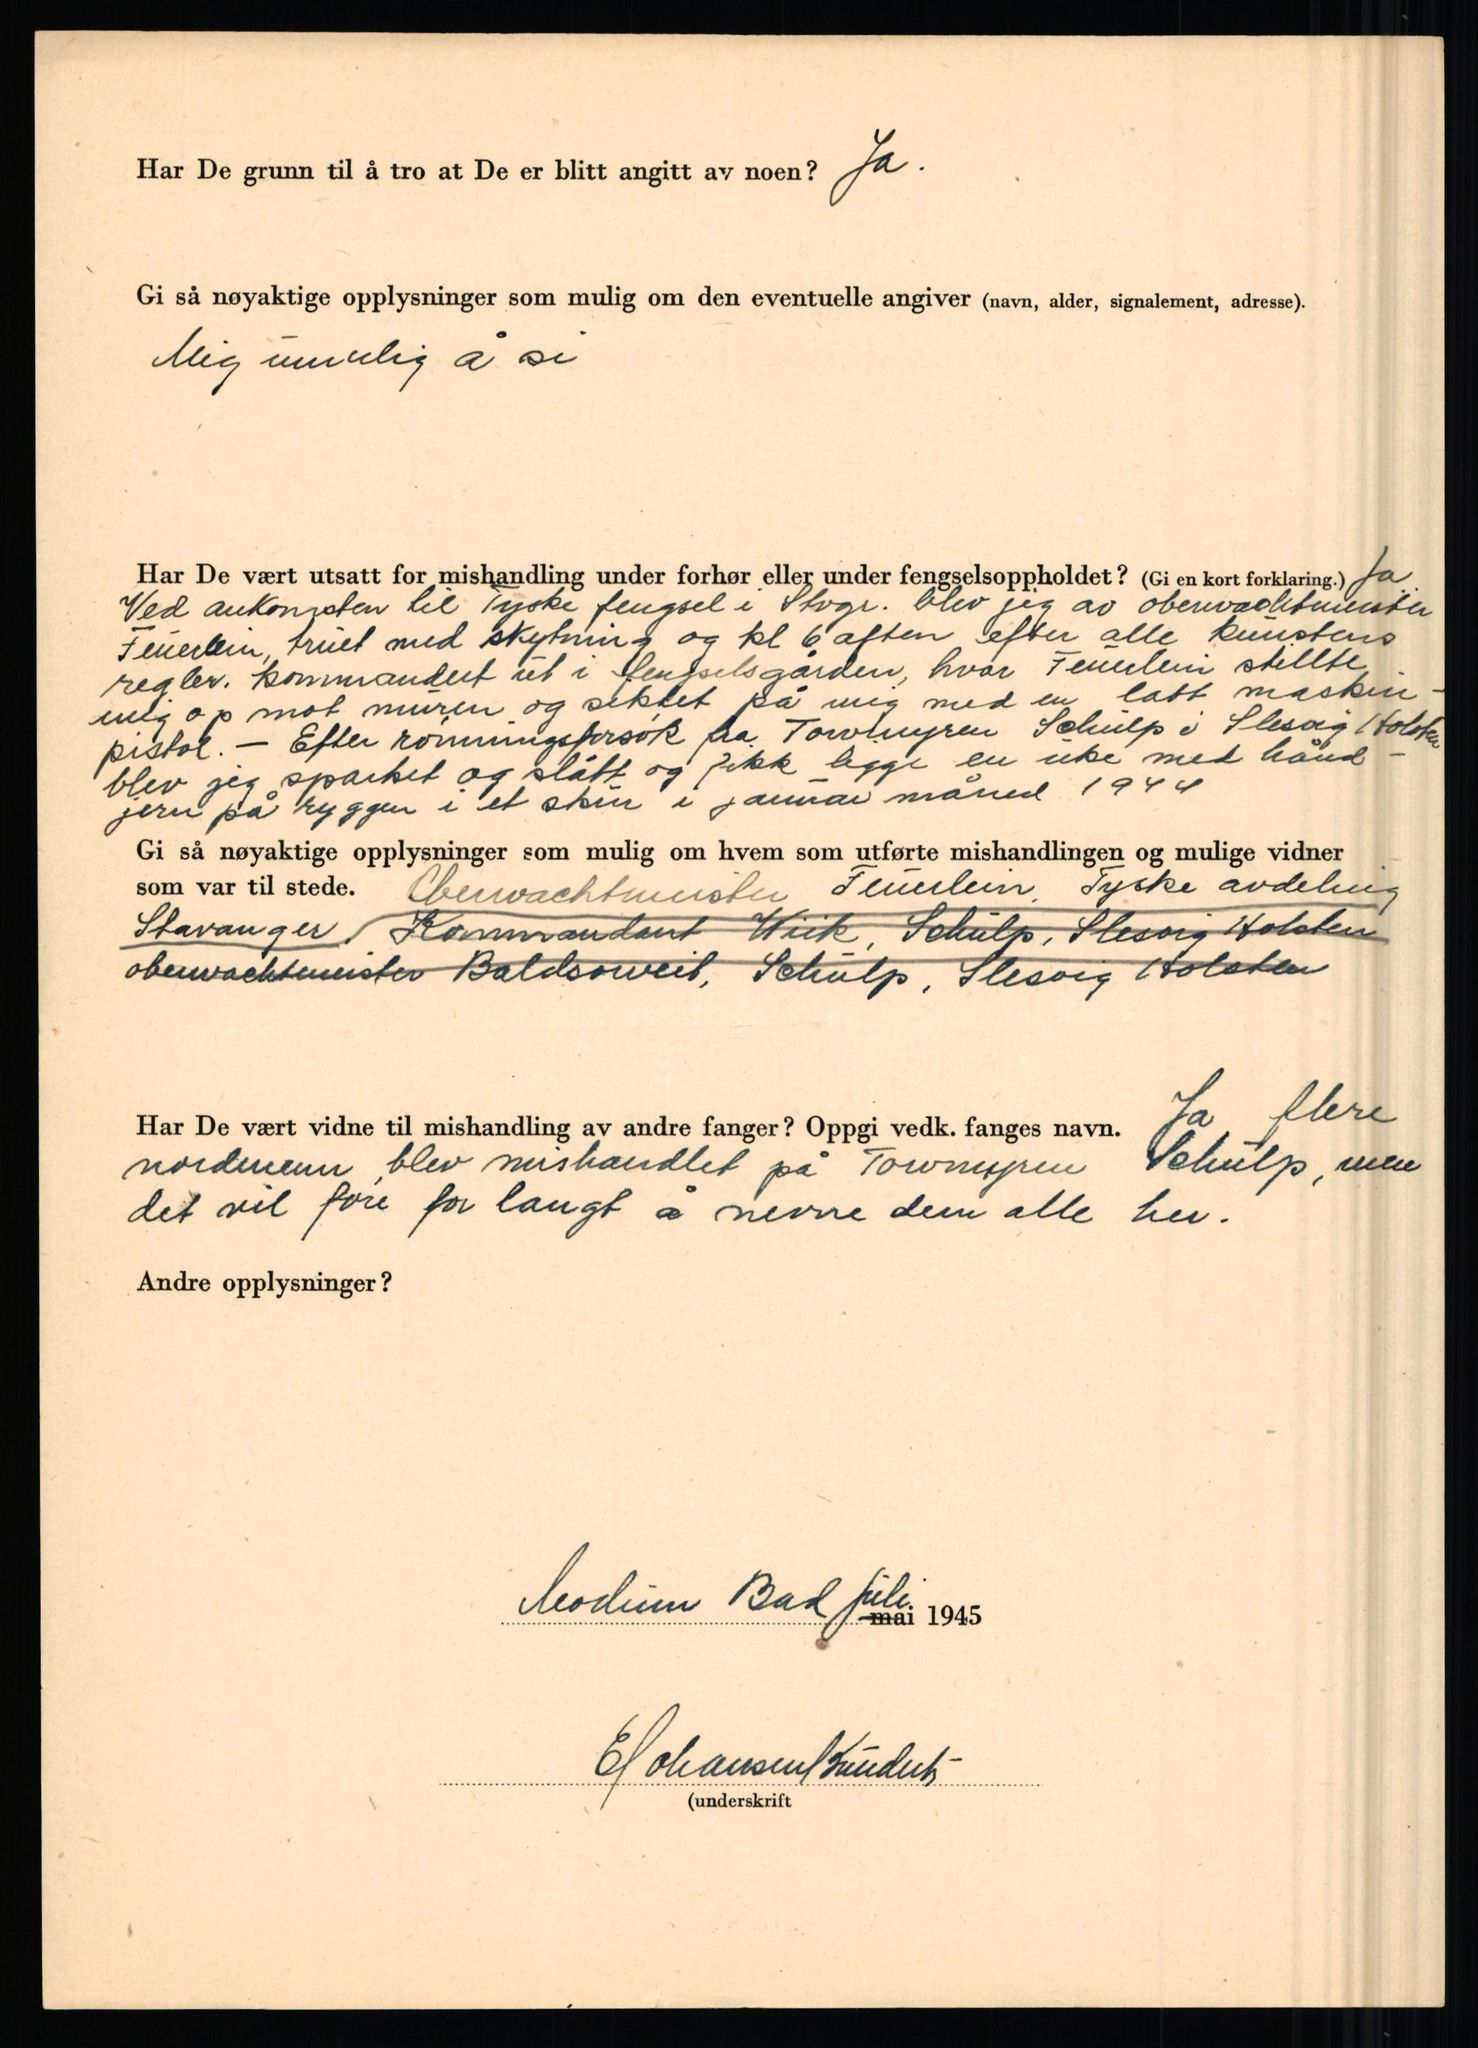 Har De grunn til å tro at De er blitt angitt av noen? Ja.
Gi så nøyaktige opplysninger som mulig om den eventuelle angiver (navn, alder, signalement, adresse).
Mig umulig å si
Har De vært utsatt for mishandling under forhør eller under fengselsoppholdet? (Gi en kort forklaring.) Ja
Ved ankomsten til Tyske fengsel i Stvgr. blev jeg av oberwachtmeister
Feuerlein, truet med skytning og kl 6 aften efter alle kunstens
regler. kommandert ut i fengselsgården, hvor Feuerlein stillte
mig op mot muren og siktet på mig med en ladt maskin-
pistol. — Efter römningsforsök fra Torvmyren Schülp i Slesvig Holsten
blev jeg sparket og slått og fikk ligge en uke med hånd-
jern på ryggen i et skur i januar måned 1944
Gi så nøyaktige opplysninger som mulig om hvem som utførte mishandlingen og mulige vidner
som var til stede. Oberwachtmeister Feuerlein, Tyske avdeling
Stavanger, Kommandant Wiik, Schülp, Slesvig Holsten
oberwachtmeister Baldsoweit, Schülp, Slesvig Holsten
Har De vært vidne til mishandling av andre fanger? Oppgi vedk. fanges navn. Ja flere
nordmenn blev mishandlet på Torvmyren Schülp, men
det vil före for langt å nevne dem alle her.
Andre opplysninger?
Modum Bad juli mai 1945
E Johansen
(underskrift